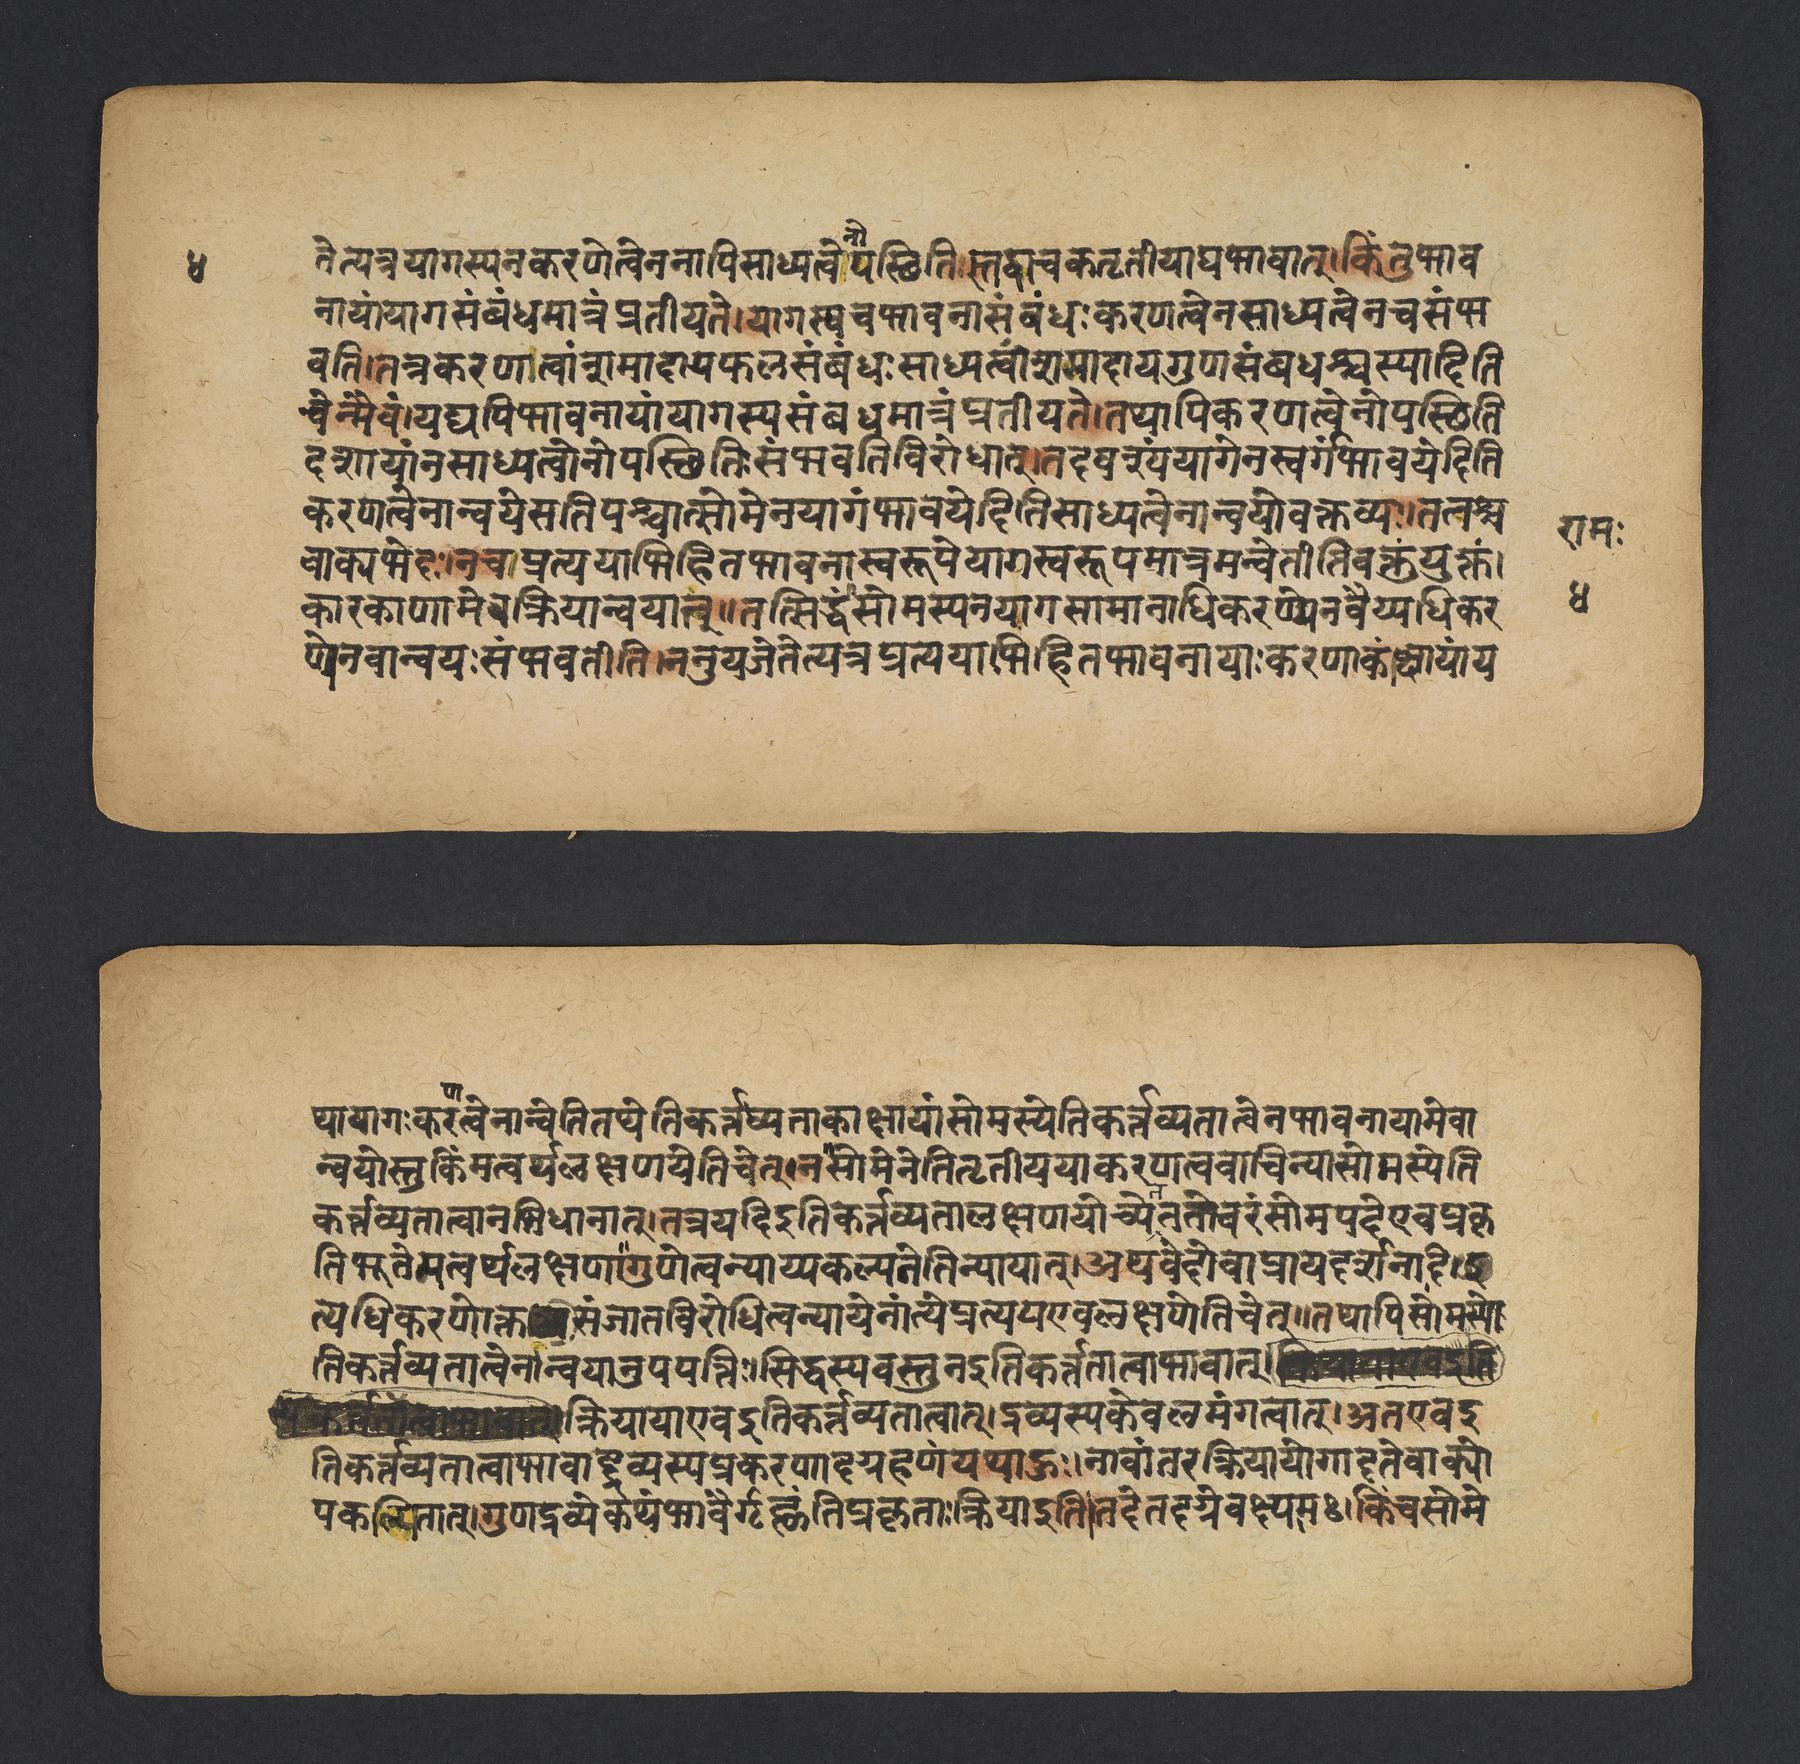 ४
तेत्यत्रयागस्यनकरणेत्वेननापिसाध्यत्वेनोपस्थिति।स्तद्वाचकतृतीयाद्यभावात्।किंतुभाव
नायांयागसंबंधमात्रंप्रतीयते।यागस्यचभावनासंबंधःकरणत्वेनसाध्यत्वेनचसंभ
वति।तत्रकरणत्वांशमादायफलसंबंधःसाध्यत्वांशमादायगुणसंबधश्चस्यादिति
चेन्मैवं।यद्यपिभावनायांयागस्यसंबधमात्रंप्रतीयते।तथापिकरणत्वेनोपस्थिति
दशायांनसाध्यत्वेनोपस्थितिःसंभवतिविरोधात्।तदेवंरूपंयागेनस्वर्गंभावयेदिति
करणत्वेनान्वयेसतिपश्चात्सोमेनयागंभावयेदितिसाध्यत्वेनान्वयोवक्तव्यः।ततश्च
वाक्यभेदः।नचप्रत्ययाभिहितभावनास्वरूपेयागस्वरूपमात्रमन्वेतीतिवक्तुंयुक्तं।
कारकाणामेवक्रियान्वयात्॥तत्सिद्धंसोमस्यनयागसामानाधिकरण्येनवैय्यधिकर
ण्येनवान्वयःसंभवतीति।ननुयजेतेत्यत्रप्रत्ययाभिहितभावनायाःकरणाकांक्षायांय
रामः
४
थायागःकरणत्वेनान्वेतितथेतिकर्त्तव्यताकाक्षायांसोमस्येतिकर्त्तव्यतात्वेनभावनायामेवा
न्वयोस्तुकिंमत्वर्थलक्षणयेतिचेत्।नसोमेनेतितृतीययाकरणत्ववाचिन्यासोमस्येति
कर्त्तव्यतात्वानभिधानात्।तत्रयदिइतिकर्त्तव्यतालक्षणयोच्येतततोवरंसोमपदेएवप्रकृ
तिभूतेमत्वर्थलक्षणागुणेत्वन्याय्यकल्पनेतिन्यायात्।अथवेदोवाप्रायदर्शनादि।
त्यधिकरणोक्तसंजातविरोधित्वन्यायेनांत्येप्रत्ययएवलक्षणेतिचेत्॥तथापिसोमस्ये
तिकर्त्तव्यतात्वेनान्वयानुपपत्तिः।सिद्धस्यवस्तुनइतिकर्त्ततात्वाभावात्।
क्रियायाएवइतिकर्त्तव्यतात्वात्।द्रव्यस्यकेवलमंगत्वात्।अतएवइ
तिकर्त्तव्यतात्वाभावाद्द्रव्यस्यप्रकरणादग्रहणंयथाहुः।नावांतरक्रियायोगादृतेवाक्यो
पकल्पितात्।गुणद्रव्येकथंभावैर्गृह्णंतिप्रकृताःक्रियाइति।तदेतदग्रेवक्ष्यमः।किंचसोमे